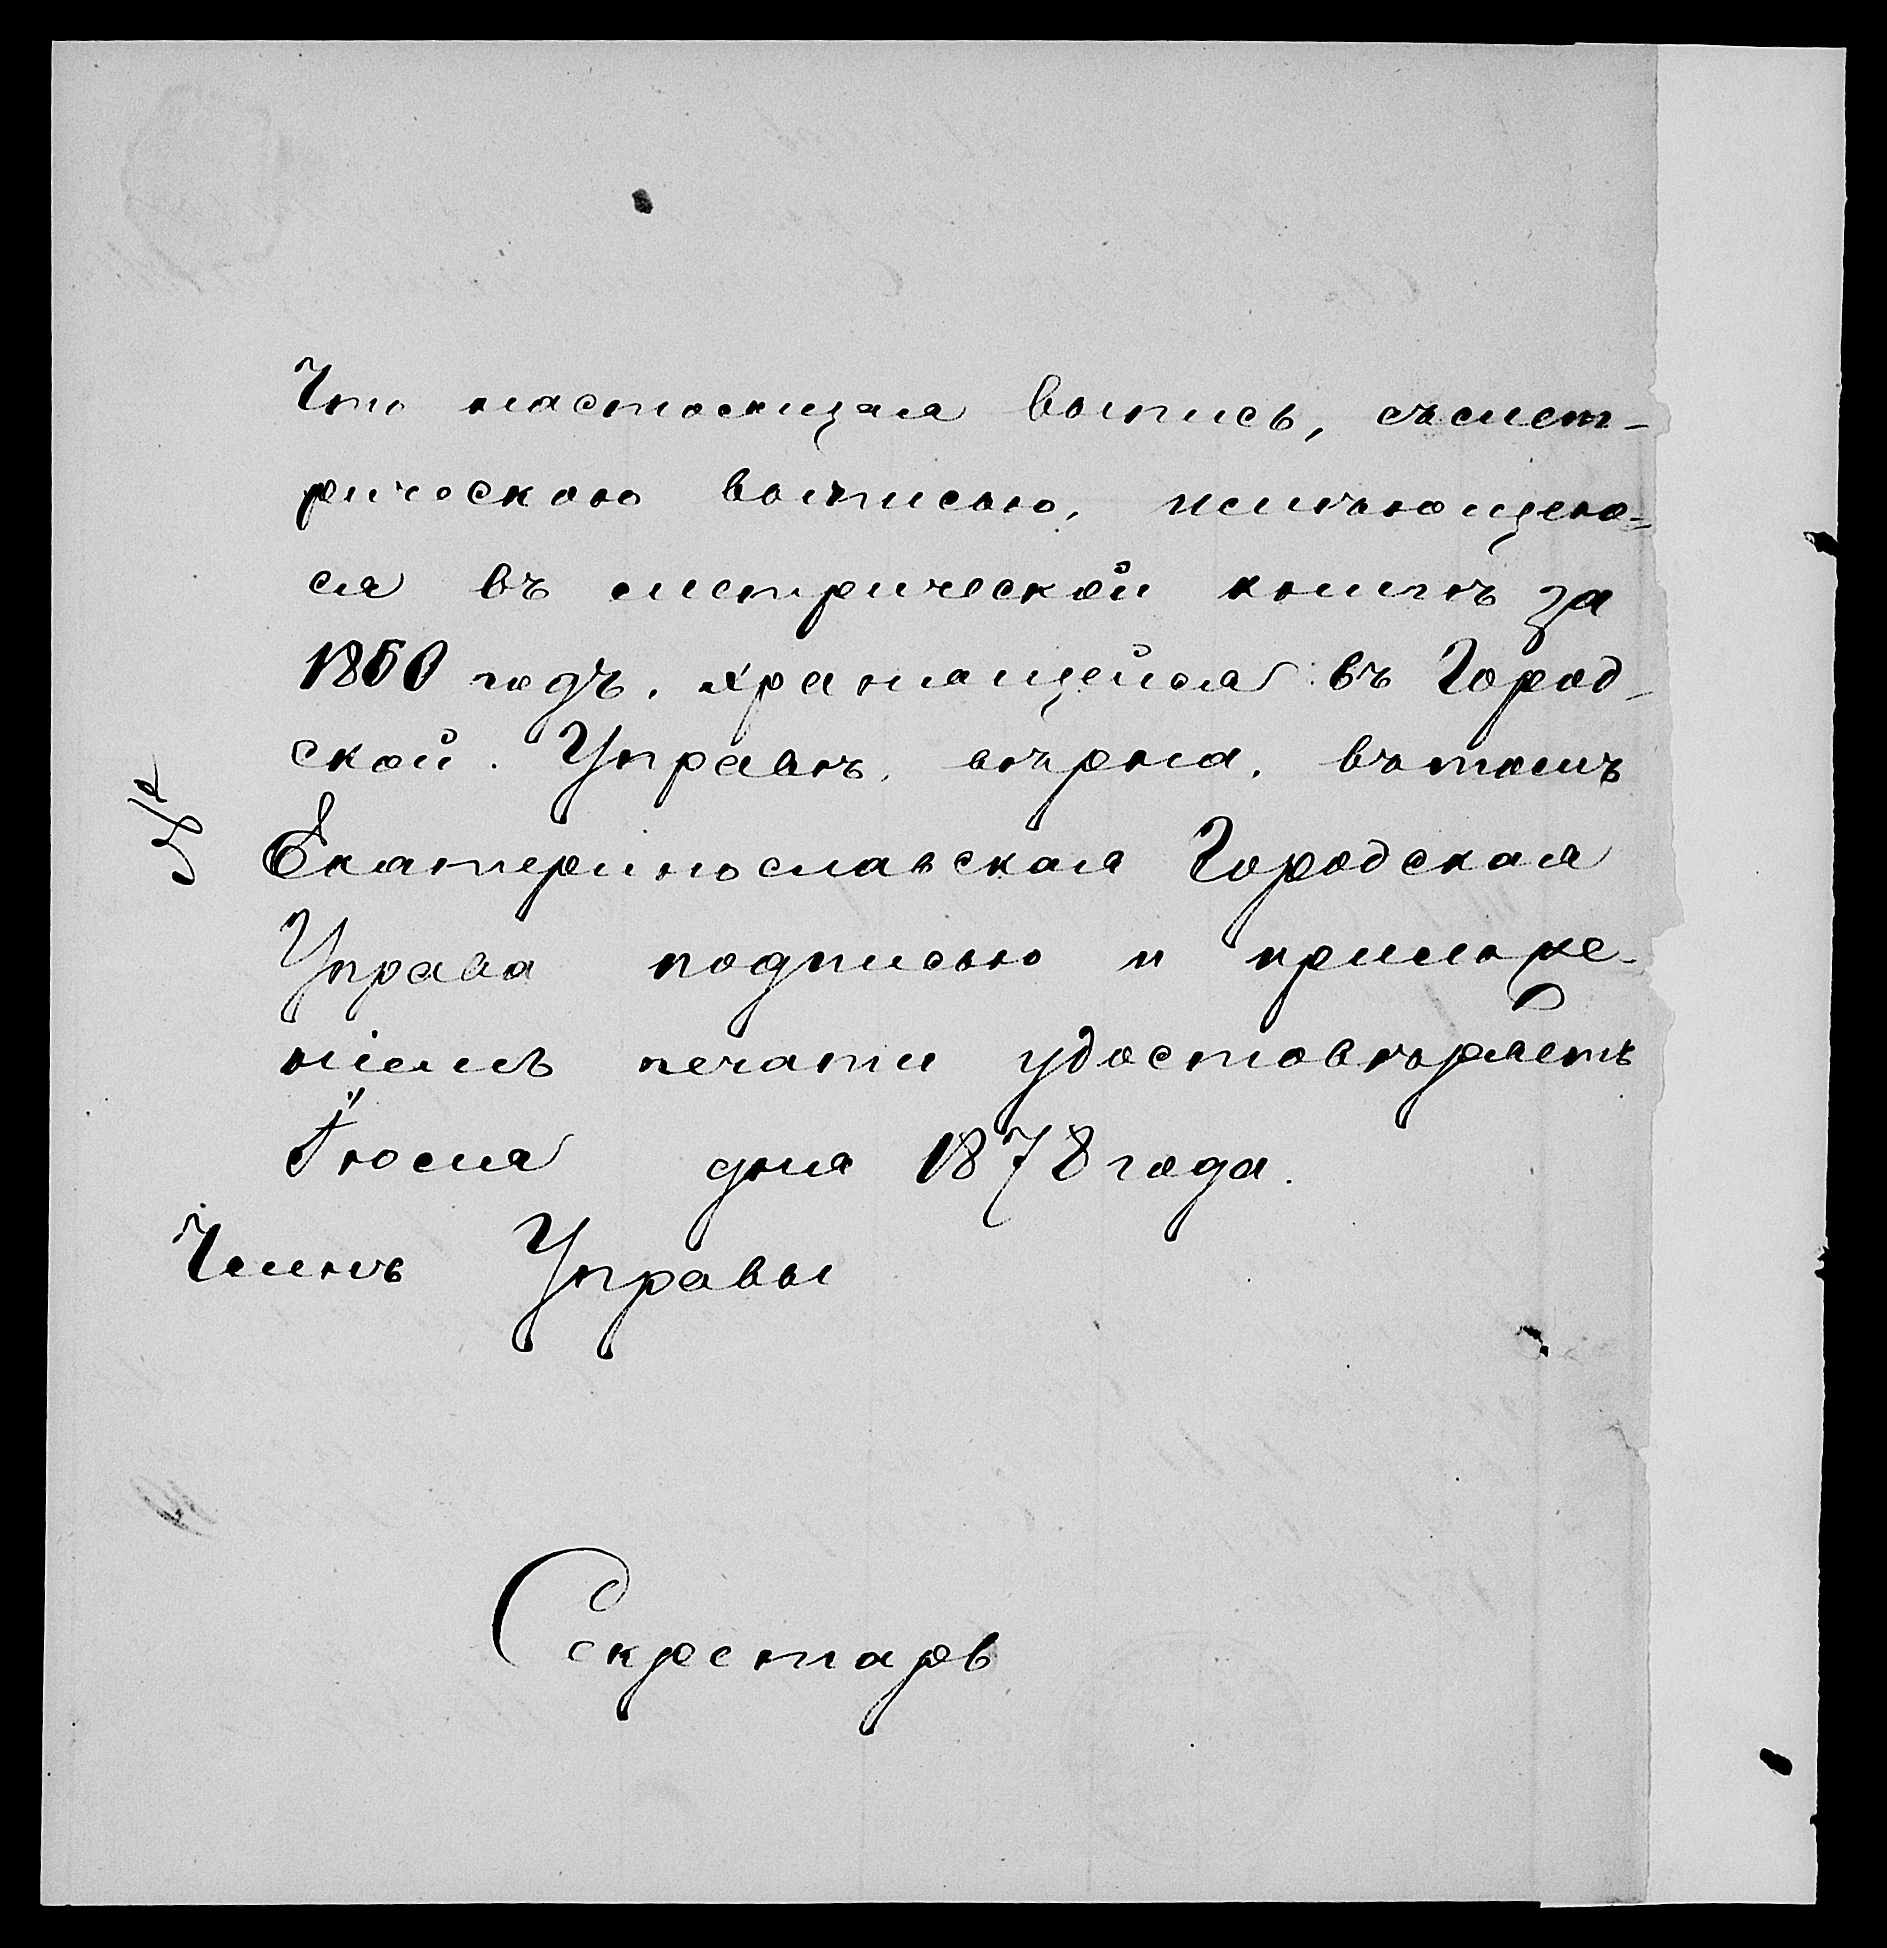 Что настоящая выпись, съ мет-
рическою выписью, имѣющею-
ся въ метрической книгѣ за
1860 годъ, хранящейся въ Город-
ской Управѣ, вѣрна, въ томъ
Екатеринославская Городская
Управа подписью и приложе-
ніемъ печати удостовѣряетъ
Іюля дня 1878 года.
Членъ Управы
Секретарь